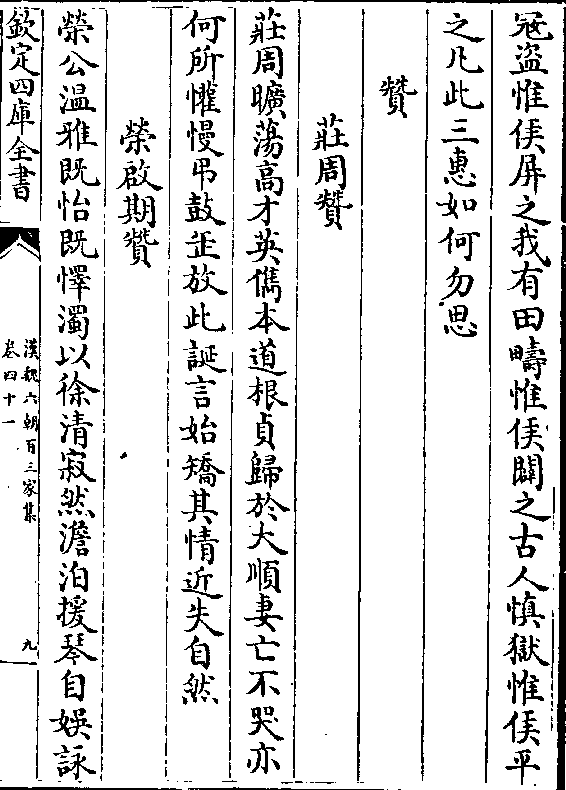 冦盜惟侯屏之我有田疇惟侯闢之古人慎獄惟侯平
之凡此三惠如何勿思
贊
莊周贊
莊周曠蕩高才英儁本道根貞歸於大順妻亡不哭亦
何所懽慢吊鼓缶放此誕言始矯其情近失自然
榮啟期贊
榮公温雅既怡既懌濁以徐清寂然澹泊援琴自娛詠
欽定四庫全書
漢魏六朝百三家集
卷四十一
九